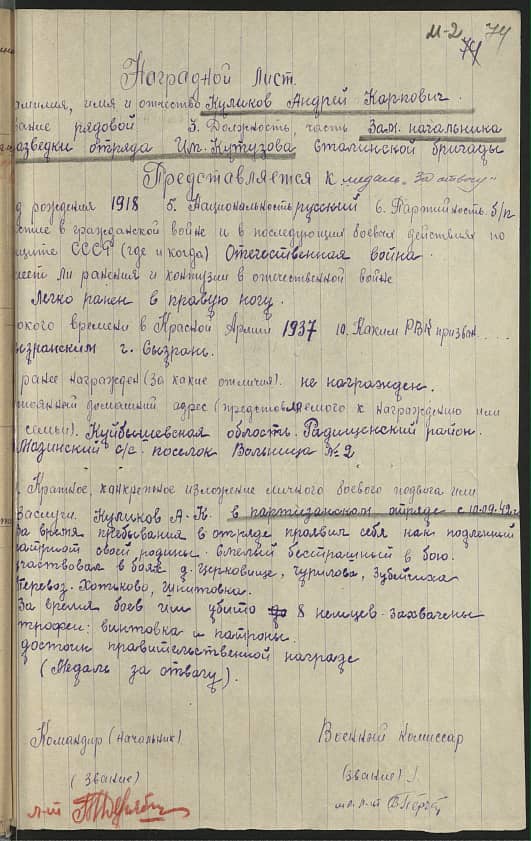 м-2 74
74
Наградной лист.
амилия, имя и отчество Куликов Андрей Карпович.
вание рядовой 3. Должность, часть Зам. начальника
разведки отряда Им. Кутузова Сталинской бригады
Представляется к медаль „За отвагу"
д рождения 1918 5. Национальность русский 6. Партийность б/п
стие в гражданской войне и в последующих боевых действиях по
щите СССР (где и когда) Отечественная война.
меет ли ранения и контузии в отечественной войне
Легко ранен в правую ногу.
акого времени в Красной Армии 1937 10. Каким РВК призван....
ызранским г. Сызрань.
ранее награжден (за какие отличия). не награжден.
тоянный домашний адрес (представляемого к награждению или
семьи). Куйбышевская область. Радищенский район.
Мазинский с/с. поселок Вольница № 2
Краткое, конкретное изложение личного боевого подвига или
заслуги. Куликов А. К. в партизанском отряде с 10.09.42г
За время пребывания в отряде проявил себя как подлинный
патриот своей родины. смелый бесстрашный в бою.
участвовал в боях д. Церковище, Чурилова,
Перевоз. Хотьково, Шпитовка.
За время боев им убито 8 немцев. захвачены
трофеи: винтовка и патроны.
достоин правительственной награде
(Медаль за отвагу).
Командир (начальник) Военный комиссар
(звание) (звание).
л-т мл. л-т